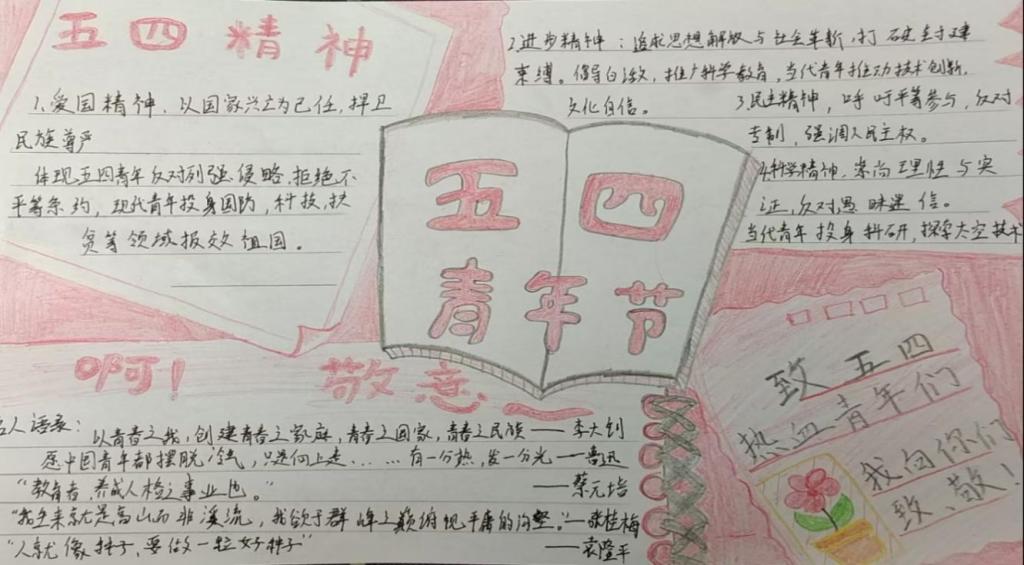 五四精神
1.爱国精神,以国家兴亡为己任,捍卫
民族尊严
体现五四青年反对列强侵略,拒绝不
平等条约,现代青年投身国防,科技,扶
贫等领域报效祖国。
2.进步精神:追求思想解放与社会革新,打破封建
束缚。倡导白话文,推广科学教育,当代青年推动技术创新,
文化自信。
3.民主精神,呼吁平等参与,反对
专制,强调人民主权。
4.科学精神,崇尚理性与实
证,反对愚昧迷信。
当代青年投身科研,探索太空技术
五四
青年节
啊!敬意
名人语录:
以青春之我,创建青春之家庭,青春之国家,青春之民族——李大钊
愿中国青年都摆脱冷气,只是向上走......有一分热,发一分光——鲁迅
“教育者,养成人格之事业也。”——蔡元培
“我生来就是高山而非溪流,我欲于群峰之巅俯视平庸的沟壑。”——张桂梅
“人就像种子,要做一粒好种子”——袁隆平
致五四
热血青年们
我向你们
致敬!